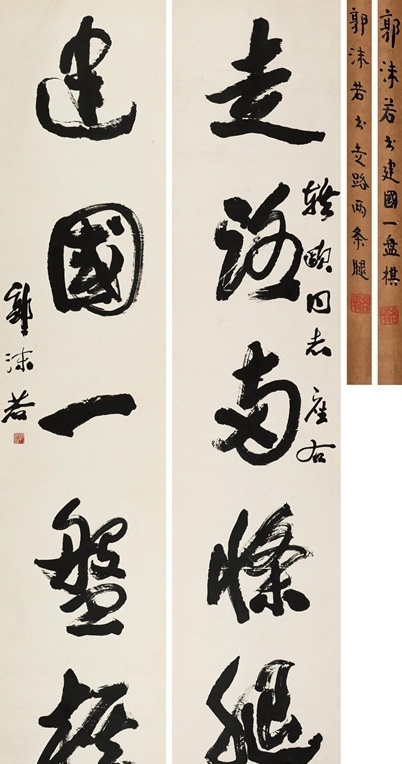 郭沫若书建國一盘棋
郭沫若书走路两条腿
走路兩條腿
同志座右
建國一盤棋
郭沫若